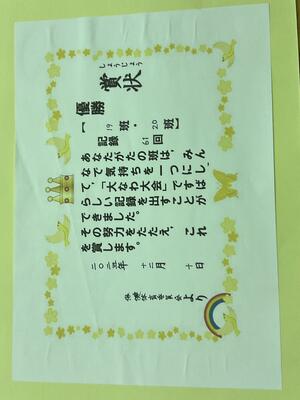 しょうじょう
賞状
優勝
【19班・20班】
記録 61回
あなたがたの班は,みん
なで気持ちを一つにし
て,「大なわ大会」ですば
らしい記録を出すことが
できました。
その努力をたたえ, これ
を賞します。
二〇二五年 十二月 十日
保健体育委員会より